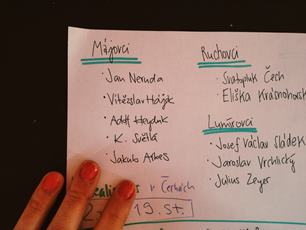 Májovci
· Jan Neruda
· Vítězslav Hálek
· Adolf Heyduk
· K. Světlá
· Jakub Arbes
Ruchovci
· Svatopluk Čech
· Eliška Krásnohorsk
Lumírovci
· Josef Václav Sládek
· Jaroslav Vrchlický
· Julius Zeyer
v Čechách
19. st.